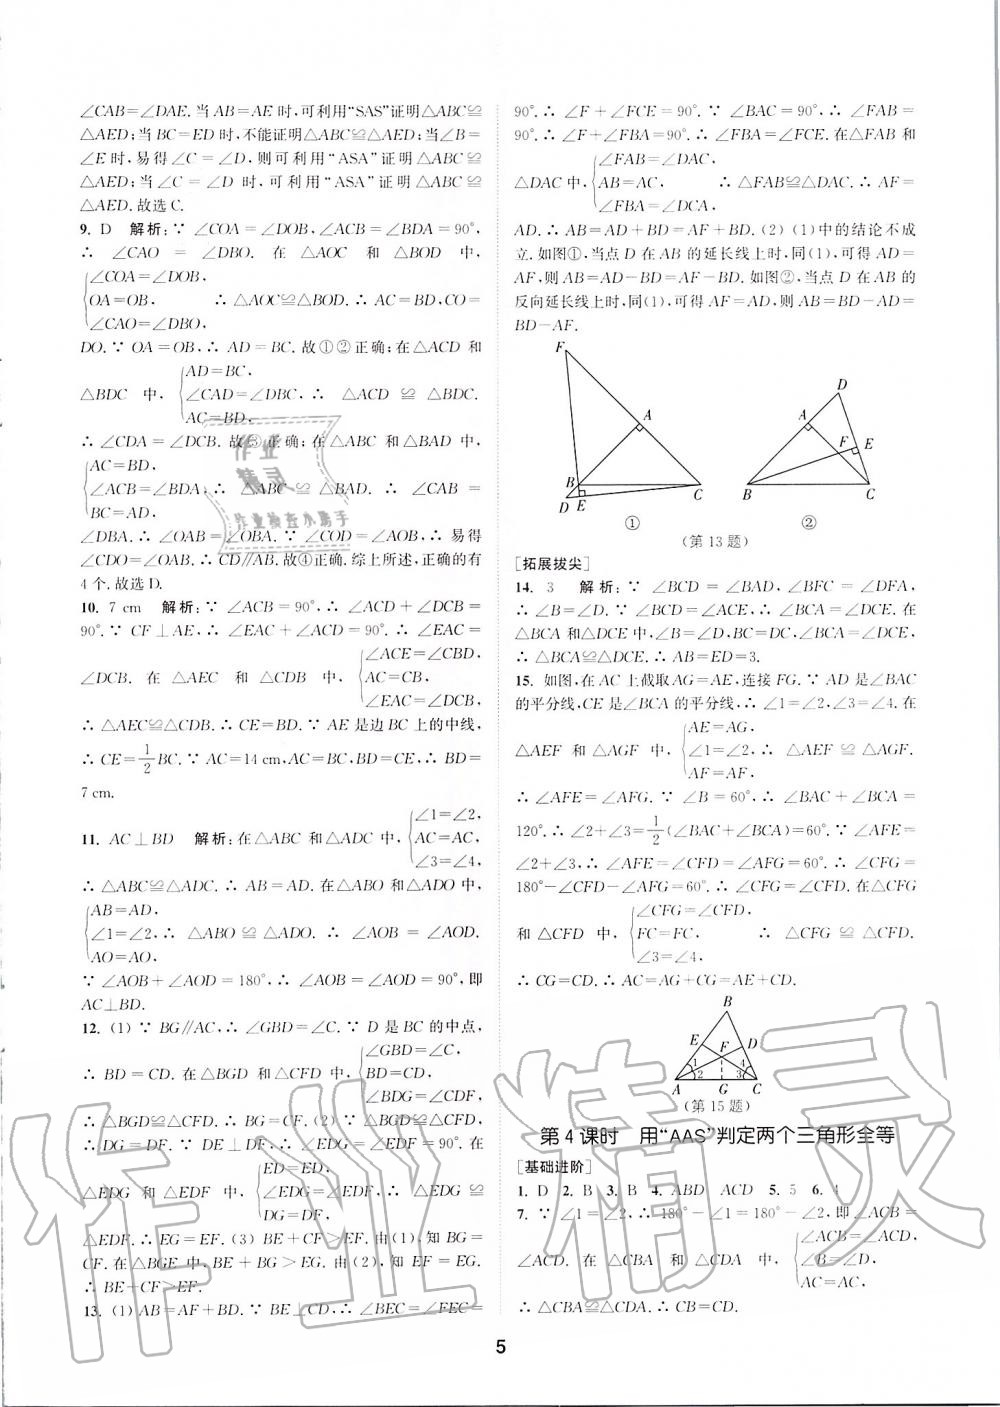 ∠CAB=∠DAE.当AB=AE时,可利用“SAS”证明△ABC≌
△AED;当BC=ED时,不能证明△ABC≌△AED;当∠B=
∠E时,易得∠C=∠D,则可利用“ASA”证明△ABC≌
△AED;当∠C=∠D时,可利用“ASA”证明△ABC≌
△AED.故选C.
9. D 解析:∵ ∠COA=∠DOB,∠ACB=∠BDA=90°,
∴ ∠CAO=∠DBO. 在 △AOC 和 △BOD 中,
∠COA=∠DOB,
OA=OB, ∴ △AOC≌△BOD.∴ AC=BD,CO=
∠CAO=∠DBO,
DO.∵ OA=OB,∴ AD=BC.故①②正确;在△ACD和
AD=BC,
△BDC 中, ∠CAD=∠DBC,∴ △ACD ≌ △BDC.
AC=BD,
∴ ∠CDA=∠DCB.故③正确;在△ABC和△BAD中,
AC=BD,
∠ACB=∠BDA,∴ △ABC ≌ △BAD.∴ ∠CAB=
BC=AD,
∠DBA.∴ ∠OAB=∠OBA.∵ ∠COD=∠AOB,∴ 易得
∠CDO=∠OAB.∴ CD∥AB.故④正确.综上所述,正确的有
4个.故选D.
10. 7 cm 解析:∵ ∠ACB=90°,∴ ∠ACD+∠DCB=
90°.∵ CF⊥AE,∴ ∠EAC+∠ACD=90°.∴ ∠EAC=
∠ACE=∠CBD,
∠DCB. 在 △AEC 和 △CDB 中, AC=CB,
∠EAC=∠DCB,
∴ △AEC≌△CDB.∴ CE=BD.∵ AE是边BC上的中线,
∴ CE=1/2BC.∵ AC=14 cm,AC=BC,BD=CE,∴ BD=
7 cm.
∠1=∠2,
11. AC⊥BD 解析:在△ABC和△ADC中, AC=AC,
∠3=∠4,
∴ △ABC≌△ADC.∴ AB=AD.在△ABO和△ADO中,
AB=AD,
∠1=∠2,∴ △ABO≌△ADO.∴ ∠AOB=∠AOD.
AO=AO,
∵ ∠AOB+∠AOD=180°,∴ ∠AOB=∠AOD=90°,即
AC⊥BD.
12. (1) ∵ BG∥AC,∴ ∠GBD=∠C.∵ D是BC的中点,
∠GBD=∠C,
∴ BD=CD.在△BGD和△CFD中, BD=CD,
∠BDG=∠CDF,
∴ △BGD≌△CFD.∴ BG=CF.(2) ∵ △BGD≌△CFD,
∴ DG=DF.∵ DE⊥DF,∴ ∠EDG=∠EDF=90°.在
ED=ED,
△EDG 和 △EDF 中, ∠EDG=∠EDF,∴ △EDG≌
DG=DF,
△EDF.∴ EG=EF.(3) BE+CF>EF.由(1),知BG=
CF.在△BGE中,BE+BG>EG.由(2),知EF=EG.
∴ BE+CF>EF.
13. (1) AB=AF+BD.∵ BE⊥CD,∴ ∠BEC=∠FEC=
90°.∴ ∠F+∠FCE=90°.∵ ∠BAC=90°,∴ ∠FAB=
90°.∴ ∠F+∠FBA=90°.∴ ∠FBA=∠FCE.在△FAB和
∠FAB=∠DAC,
△DAC中, AB=AC, ∴ △FAB≌△DAC.∴ AF=
∠FBA=∠DCA,
AD.∴ AB=AD+BD=AF+BD.(2) (1)中的结论不成
立.如图①,当点D在AB的延长线上时,同(1),可得AD=
AF,则AB=AD-BD=AF-BD.如图②,当点D在AB的
反向延长线上时,同(1),可得AF=AD,则AB=BD-AD=
BD-AF.
F
A
B
C
D E
①
D
A
F E
B
C
②
(第13题)
[拓展拔尖]
14. 3 解析:∵ ∠BCD=∠BAD,∠BFC=∠DFA,
∴ ∠B=∠D.∵ ∠BCD=∠ACE,∴ ∠BCA=∠DCE.在
△BCA和△DCE中,∠B=∠D,BC=DC,∠BCA=∠DCE,
∴ △BCA≌△DCE.∴ AB=ED=3.
15. 如图,在AC上截取AG=AE,连接FG.∵ AD是∠BAC
的平分线,CE是∠BCA的平分线,∴ ∠1=∠2,∠3=∠4.在
AE=AG,
△AEF 和 △AGF 中, ∠1=∠2,∴ △AEF ≌ △AGF.
AF=AF,
∴ ∠AFE=∠AFG.∵ ∠B=60°,∴ ∠BAC+∠BCA=
120°.∴ ∠2+∠3=1/2(∠BAC+∠BCA)=60°.∵ ∠AFE=
∠2+∠3,∴ ∠AFE=∠CFD=∠AFG=60°.∴ ∠CFG=
180°-∠CFD-∠AFG=60°.∴ ∠CFG=∠CFD.在△CFG
∠CFG=∠CFD,
和 △CFD 中, FC=FC, ∴ △CFG ≌ △CFD.
∠3=∠4,
∴ CG=CD.∴ AC=AG+CG=AE+CD.
B
E
F
D
1
2
4
3
A G C
(第15题)
第4课时 用“AAS”判定两个三角形全等
[基础进阶]
1. D 2. B 3. B 4. ABD ACD 5. 5 6. 4
7. ∵ ∠1=∠2,∴ 180°-∠1=180°-∠2,即∠ACB=
∠ACB=∠ACD,
∠ACD. 在 △CBA 和 △CDA 中, ∠B=∠D,
AC=AC,
∴ △CBA≌△CDA.∴ CB=CD.
5
作业
精灵
作业检查小助手
作业精灵